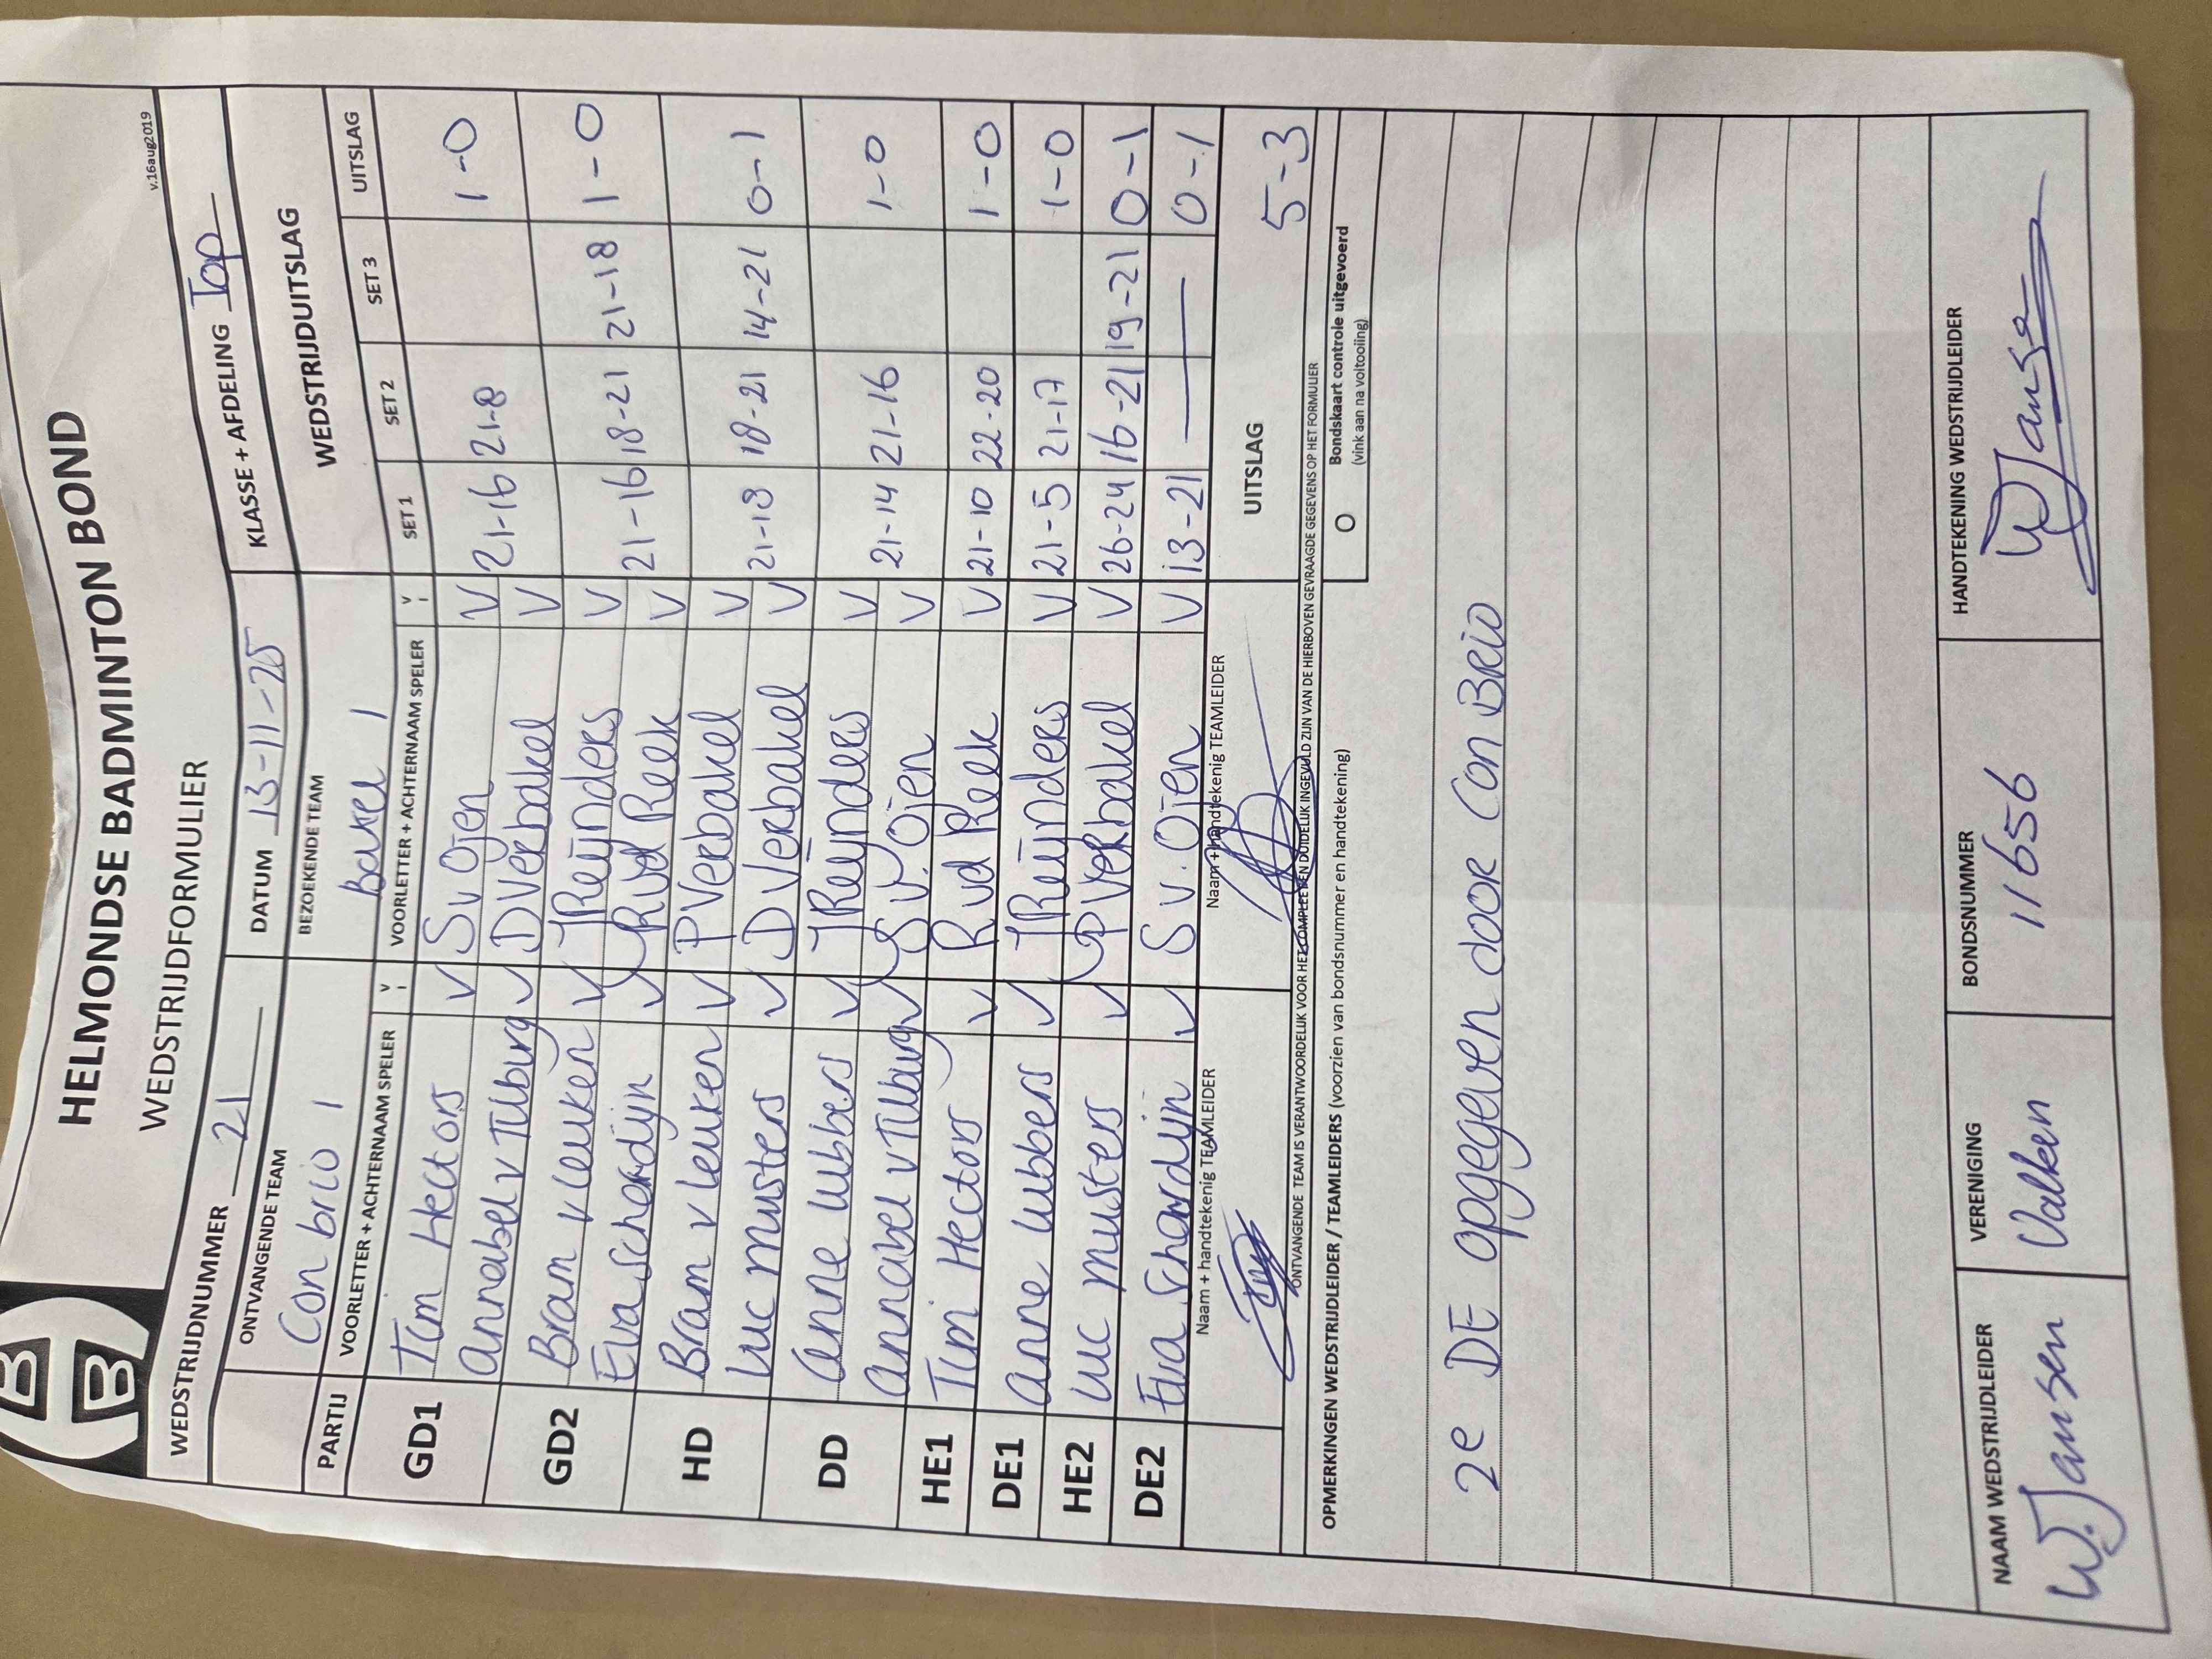 HELMONDSE BADMINTON BOND
WEDSTRIJDFORMULIER
v.16aug2019
WEDSTRIJDNUMMER 21 DATUM 13-11-25 KLASSE + AFDELING Top
ONTVANGENDE TEAM BEZOEKENDE TEAM WEDSTRIJDUITSLAG
Con brio 1 Bakel 1
PARTIJ VOORLETTER + ACHTERNAAM SPELER V VOORLETTER + ACHTERNAAM SPELER V SET 1 SET 2 SET 3 UITSLAG
GD1 Tim Hectors V S v Ojen V 21-16 21-8 1-0
Annabel v Tilburg V D Verbakel V
GD2 Bram v Leuken V J Reijnders V 21-16 18-21 21-18 1-0
Eva Schordijn V R vd Reek V
HD Bram v Leuken V P Verbakel V 21-18 18-21 14-21 0-1
Luc Musters V D Verbakel V
DD Anne Lubbers V J Reijnders V 21-14 21-16 1-0
Annabel v Tilburg V S v. Ojen V
HE1 Tim Hectors V R vd Reek V 21-10 22-20 1-0
DE1 Anne Lubbers V J Reijnders V 21-5 21-17 1-0
HE2 Luc Musters V P Verbakel V 26-24 16-21 19-21 0-1
DE2 Eva Schordijn V S v. Ojen V 13-21 — — 0-1
Naam + handtekenig TEAMLEIDER Naam + handtekenig TEAMLEIDER UITSLAG 5-3
ONTVANGENDE TEAM IS VERANTWOORDELIJK VOOR HET COMPLEET EN DUIDELIJK INGEVULD ZIJN VAN DE HIERBOVEN GEVRAAGDE GEGEVENS OP HET FORMULIER
OPMERKINGEN WEDSTRIJDLEIDER / TEAMLEIDERS (voorzien van bondsnummer en handtekening) O Bondskaart controle uitgevoerd
(vink aan na voltooiing)
2e DE opgegeven door Con Brio
NAAM WEDSTRIJDLEIDER VERENIGING BONDSNUMMER HANDTEKENING WEDSTRIJDLEIDER
W. Jansen Valken 11656 W Jansen